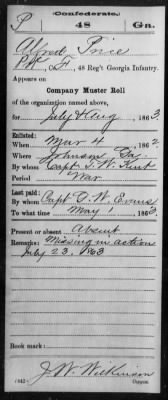 (Confederate.)
P 48 Ga.
Alfred Price
Pvt, Co. F, 48 Reg't Georgia Infantry.
Appears on
Company Muster Roll
of the organization named above,
for July & Aug, 1863.
Enlisted:
When Mar 4, 1862
Where Johnson Ga.
By whom Capt T. W. Kent
Period War
Last paid:
By whom Capt T. W. Evans
To what time May 1, 1863.
Present or absent Absent
Remarks: Missing in action
July 23, 1863
Book mark:
J. W. Wilkinson
(642) Copyist.